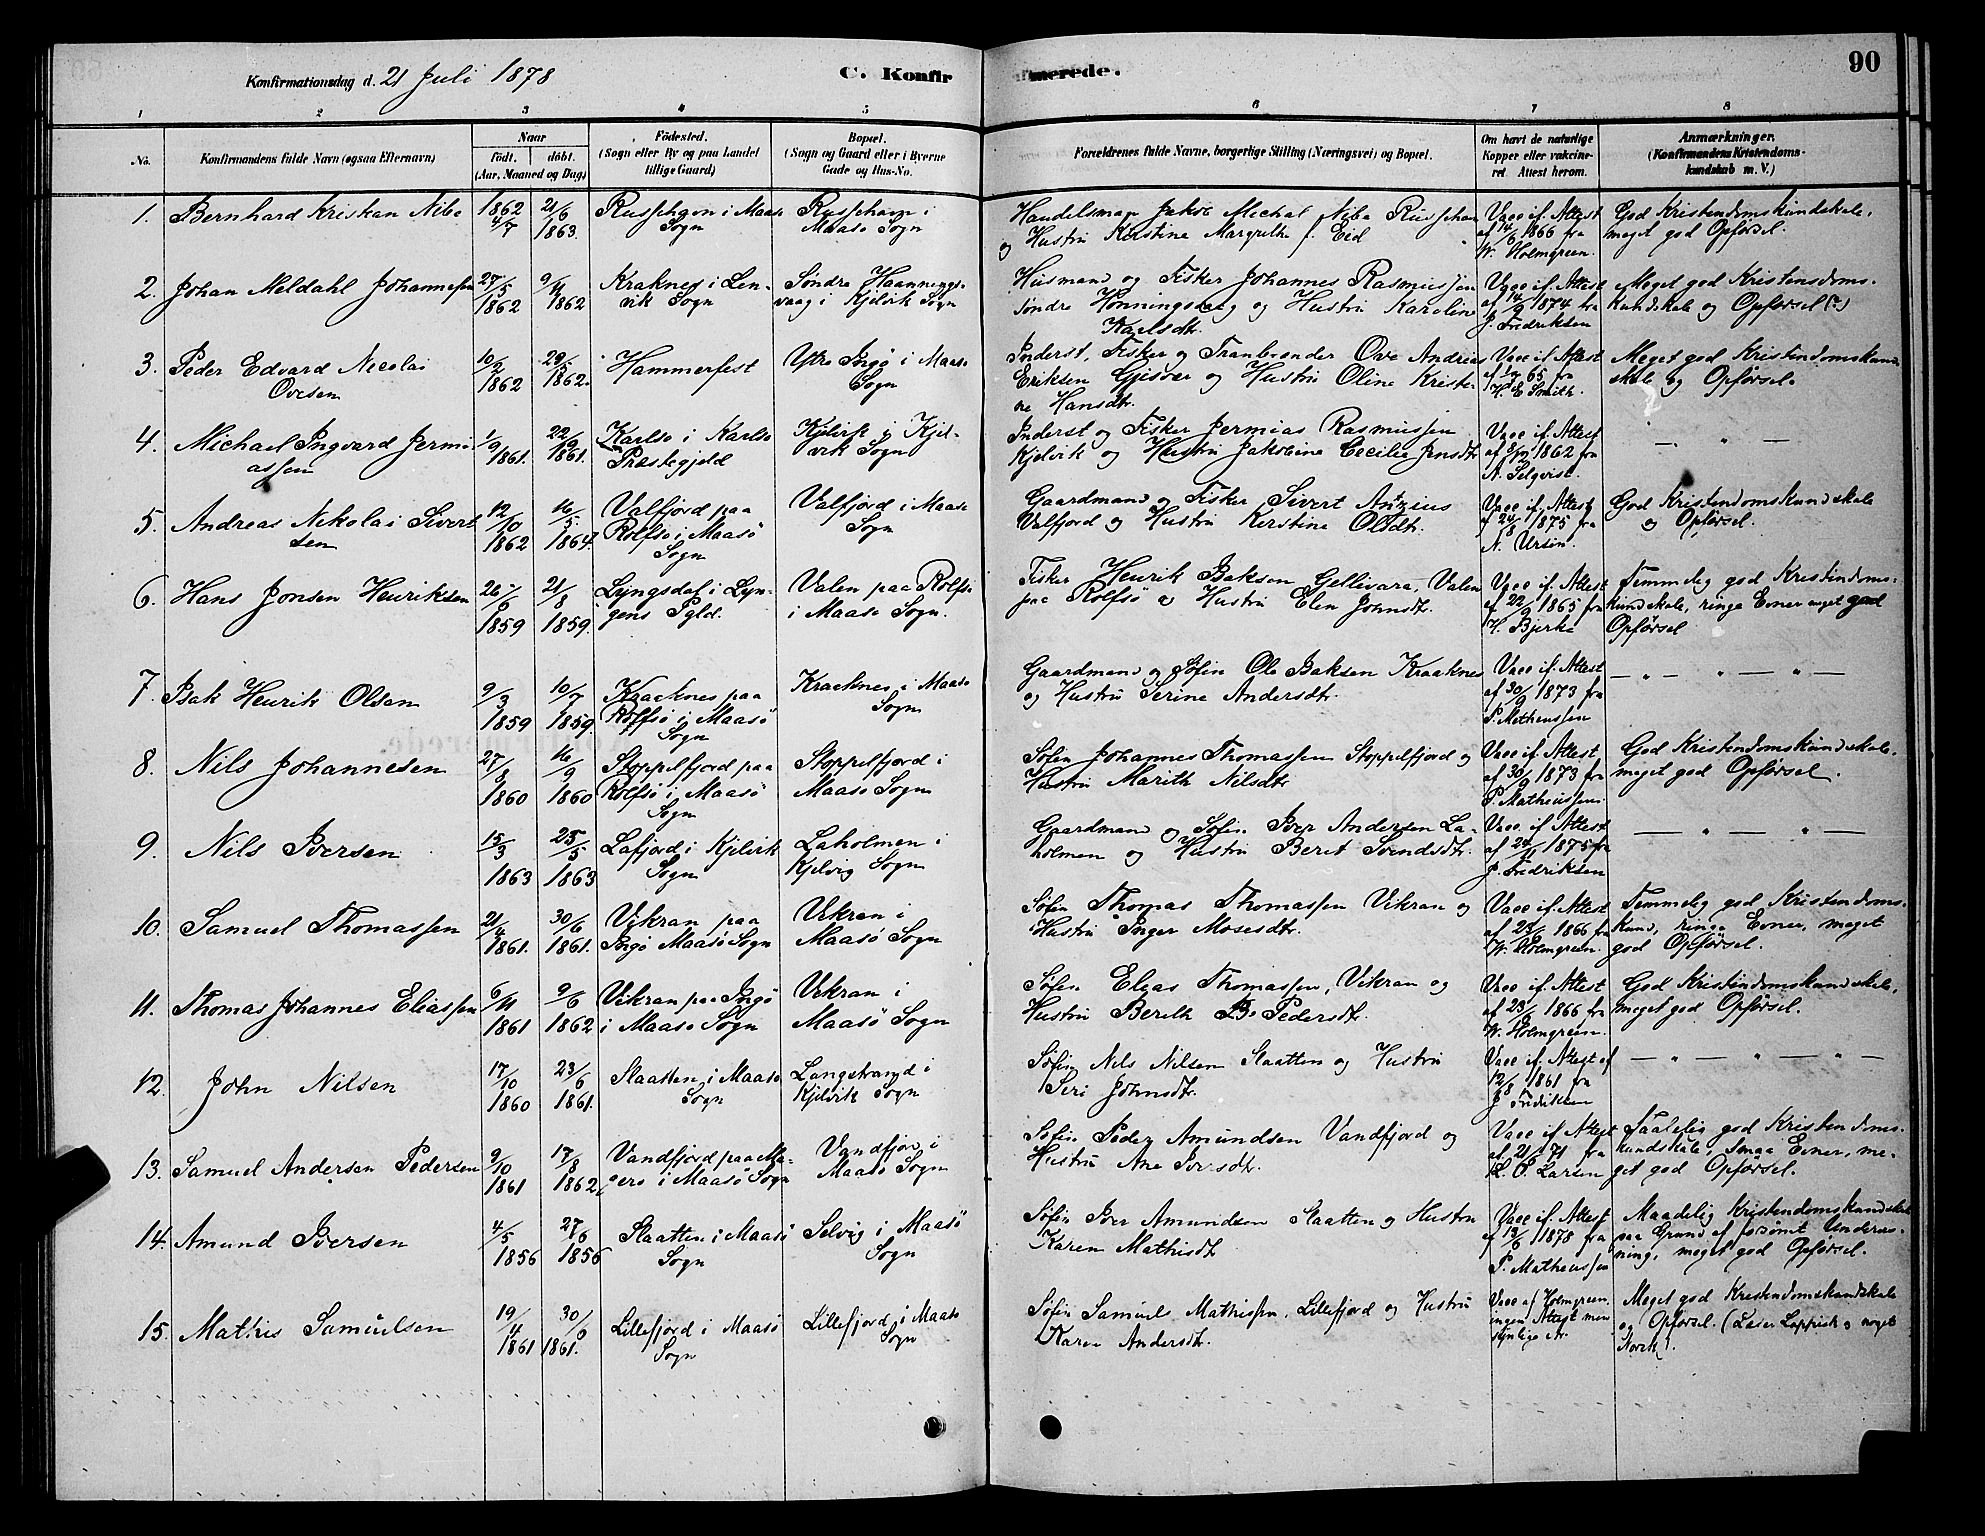 Konfirmationsdag d. 21 Juli 1878
C. Konfirmerede.
90
1 2 3 4 5 6 7 8
No.
Konfirmandens fulde Navn (ogsaa Efternavn)
Naar
födt. döbt.
(Aar, Maaned og Dag)
Födested.
(Sogn eller By og paa Landet
tillige Gaard)
Bopæl.
(Sogn og Gaard eller i Byerne
Gade og Hus-No.
Forældrenes fulde Navne, borgerlige Stilling (Næringsvei) og Bopæl.
Om havt de naturlige
Kopper eller vakcine-
ret. Attest herom.
Anmærkninger.
(Konfirmandens Kristendoms-
kundskab m. V.)
1. Bernhard Kristian Niba
1862 4/7
21/6 1863.
i Maasø Sogn
i Maasø Sogn
Handelsmand Jakob Michal Niba
og Hustru Kirstine Margrethe f. Eid
Vacc. if. Attest
af 14/6 1866 fra
W. Holmgreen.
God Kristendomskundskab,
meget god Opførsel.
2. Johan Meldahl Johannesen
27/5 1862
9/11 1862
Kraknes i Len-
vik Sogn
Søndre Haannings-
vaag i Kjelvik Sogn
Husmand og Fisker Johannes Rasmussen
søndre Honningsvaag og Hustru Karoline
Karlsdtr.
Vacc. if. Attest
af 14/9 1874 fra
J. Fredriksen
Meget god Kristendoms-
kundskab og Opførsel (?)
3. Peder Edvard Nicolai
Ovesen
10/2 1862
29/5 1862.
Hammerfest
Ytre Ingø i Maasø
Sogn
Inderst, Fisker og Tranbrænder Ove Andreas
Eriksen Gjesvær og Hustru Oline Kristi-
ne Hansdtr.
Vacc. if. Attest
H. E. Smith.
Meget god Kristendomskund-
skab og Opførsel.
4. Michael Ingvard Jermi-
assen
1/9 1861.
22/9 1861.
Karlsø i Karlsø
Præstegjeld
Kjelvik i Kjel-
vik Sogn
Inderst og Fisker Jermias Rasmussen
Kjelvik og Hustru Jakobine Cecilie Jensdtr
Vacc. if. Attest
1862 fra
A. Selqvist.
— " —
5. Andreas Nikolai Sivert-
sen
12/10 1862
16/5 1864.
Valfjord paa
Rolfsø i Maasø
Sogn
Valfjord i Maasø
Sogn
Gaardmand og Fisker Sivert Antzius
Valfjord og Hustru Kerstine Olsdtr.
Vacc. if. Attest
af 24/8 1875 fra
N. Ursin.
God Kristendomskundskab
og Opførsel.
6. Hans Jonsen Henriksen
1859
21/8 1859.
Lyngsdal i Lyn-
gens Pgld.
Valen paa Rolfsø
i Maasø Sogn.
Fisker Henrik Isaksen Gellivara, Valen
paa Rolfsø og Hustru Elen Johnsdtr.
Vacc. if. Attest
af 22/9 1865 fra
H. Bjerke
Temmelig god Kristendoms-
kundskab, ringe Evner meget god
Opførsel
7. Isak Henrik Olsen
9/3 1859
10/7 1859.
Kracknes paa
Rolfsø i Maasø
Sogn
Kracknes i Maasø
Sogn
Gaardmand og Søfin Ole Isaksen Kraaknes
og Hustru Serine Andersdtr.
Vacc. if. Attest
af 30/9 1873 fra
P. Matheussen
— " — " — " —
8. Nils Johannesen
27/8 1860
16/9 1860
Stoppelfjord paa
Rolfsø i Maasø
Sogn
Stoppelfjord i
Maasø Sogn
Søfin Johannes Thomassen Stoppelfjord og
Hustru Marith Nilsdtr
Vacc. if. Attest
af 30/9 1873 fra
P. Matheussen.
God Kristendomskundskab,
meget god Opførsel.
9. Nils Iversen
15/3 1863
25/5 1863
Lafjord i Kjelvik
Sogn
Laholmen i
Kjelvig Sogn
Gaardmand og Søfin Iver Andersen La-
holmen og Hustru Berit Svendsdtr.
Vacc. if. Attest
1875 fra
J. Fredriksen
— " — " —
10. Samuel Thomassen
21/4 1861.
30/6 1861.
Vikran paa
Ingø Maasø Sogn
Vikran i
Maasø Sogn
Søfin Thomas Thomassen Vikran og
Hustru Inger Mosesdtr.
Vacc. if. Attest
1866 fra
W. Holmgreen.
Temmelig god Kristendoms-
kund, ringe Evner, meget
god Opførsel.
11. Thomas Johannes Eliassen
6/11 1861
9/6 1862
Vikran paa Ingø
i Maasø Sogn
Vikran i
Maasø Sogn
Søfin Elias Thomassen, Vikran og
Hustru Berith B. Pedersdt.
Vacc. if. Attest
1866 fra
W. Holmgreen.
God Kristendomskundskab,
meget god Opførsel.
12. John Nilsen
17/10 1860
23/6 1861.
Slaatten i Maasø
Sogn
Langstrand i
Kjelvik Sogn
Søfin Nils Nilsen Slaatten og Hustru
Siri Johnsdtr.
Vacc. if. Attest af
12/8 1861 fra
J. Fredriksen
— " — " — " —
13. Samuel Andersen Pedersen
9/10 1861
17/8 1862
Vandfjord paa Ma-
gerø i Maasø Sogn
Vandfjor i
Maasø Sogn
Søfin Peder Amundsen Vandfjord og
Hustru Ane Iversdtr.
Vacc. if. Attest
fra
L. O. Larsen
god Kristendoms-
kundskab, smaa Evner, me-
get god Opførsel.
14. Amund Iversen
4/5 1856
27/6 1856
Slaatten i Maasø
Sogn
Selvig i Maasø
Sogn
Søfin Iver Amundsen Slaatten og Hustru
Karen Mathisdt.
Vacc. if. Attest
af 13/6 1878 fra
P. Matheussen
Maadelig Kristendomskundskab
paa Grund af forsømt Undervis-
ning, meget god Opførsel.
15. Mathis Samuelsen
19/4 1861
1861.
Lillefjord i Maasø
Sogn
Lillefjord i Maasø
Sogn
Søfin Samuel Mathissen, Lillefjord og Hustru
Karen Andersdtr.
Vacc. af Holmgreen,
ingen Attest men
synlige Ar.
Meget god Kristendomskundskab
og Opførsel. (Læser Lappisk og noget
Norsk).